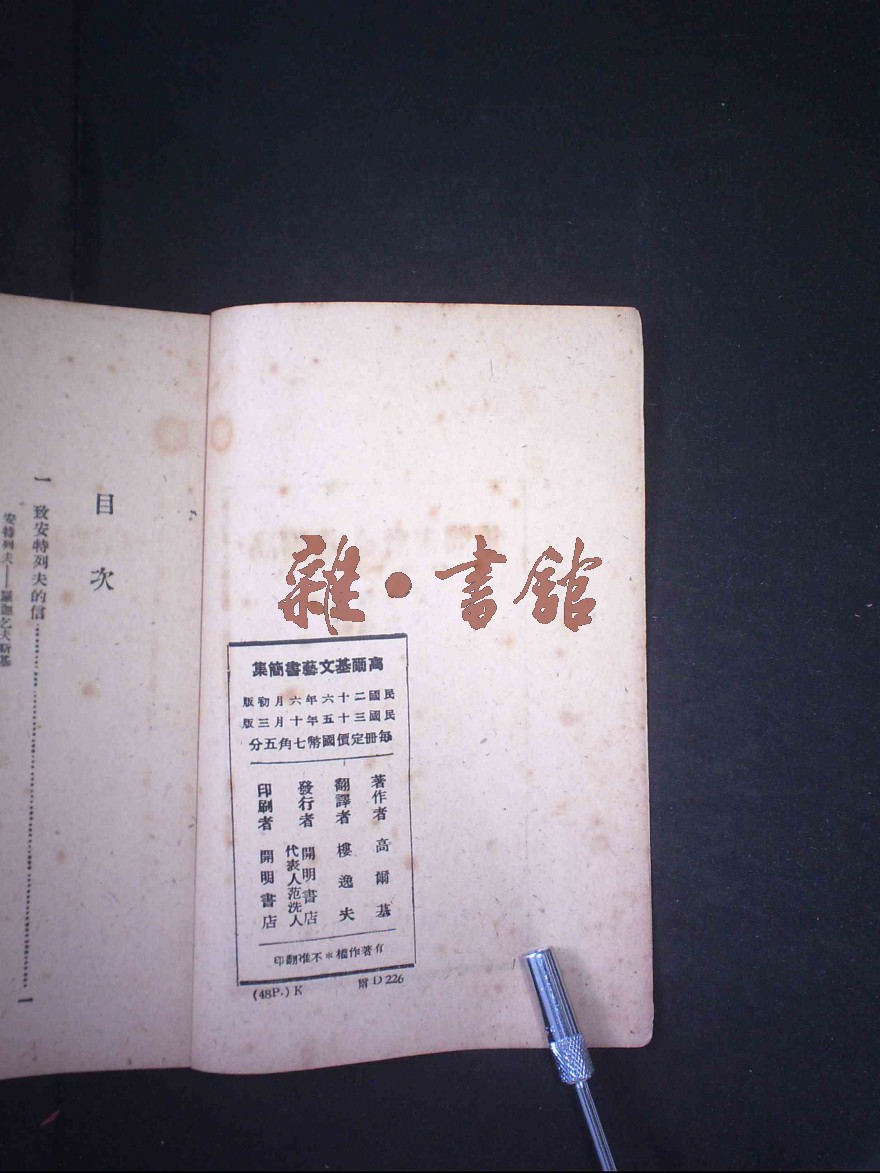 雜·書館
高爾基文藝書簡集
民國二十六年六月初版
民國三十五年十月三版
每冊定價國幣七角五分
著作者 高爾基
翻譯者 樓逸夫
發行者 開明書店
代表人范洗人
印刷者 開明書店
有著作權＊不准翻印
(48P.) K
爾 D 226
目次
一 致安特列夫的信…………一
安特列夫——羅迦乞夫斯基